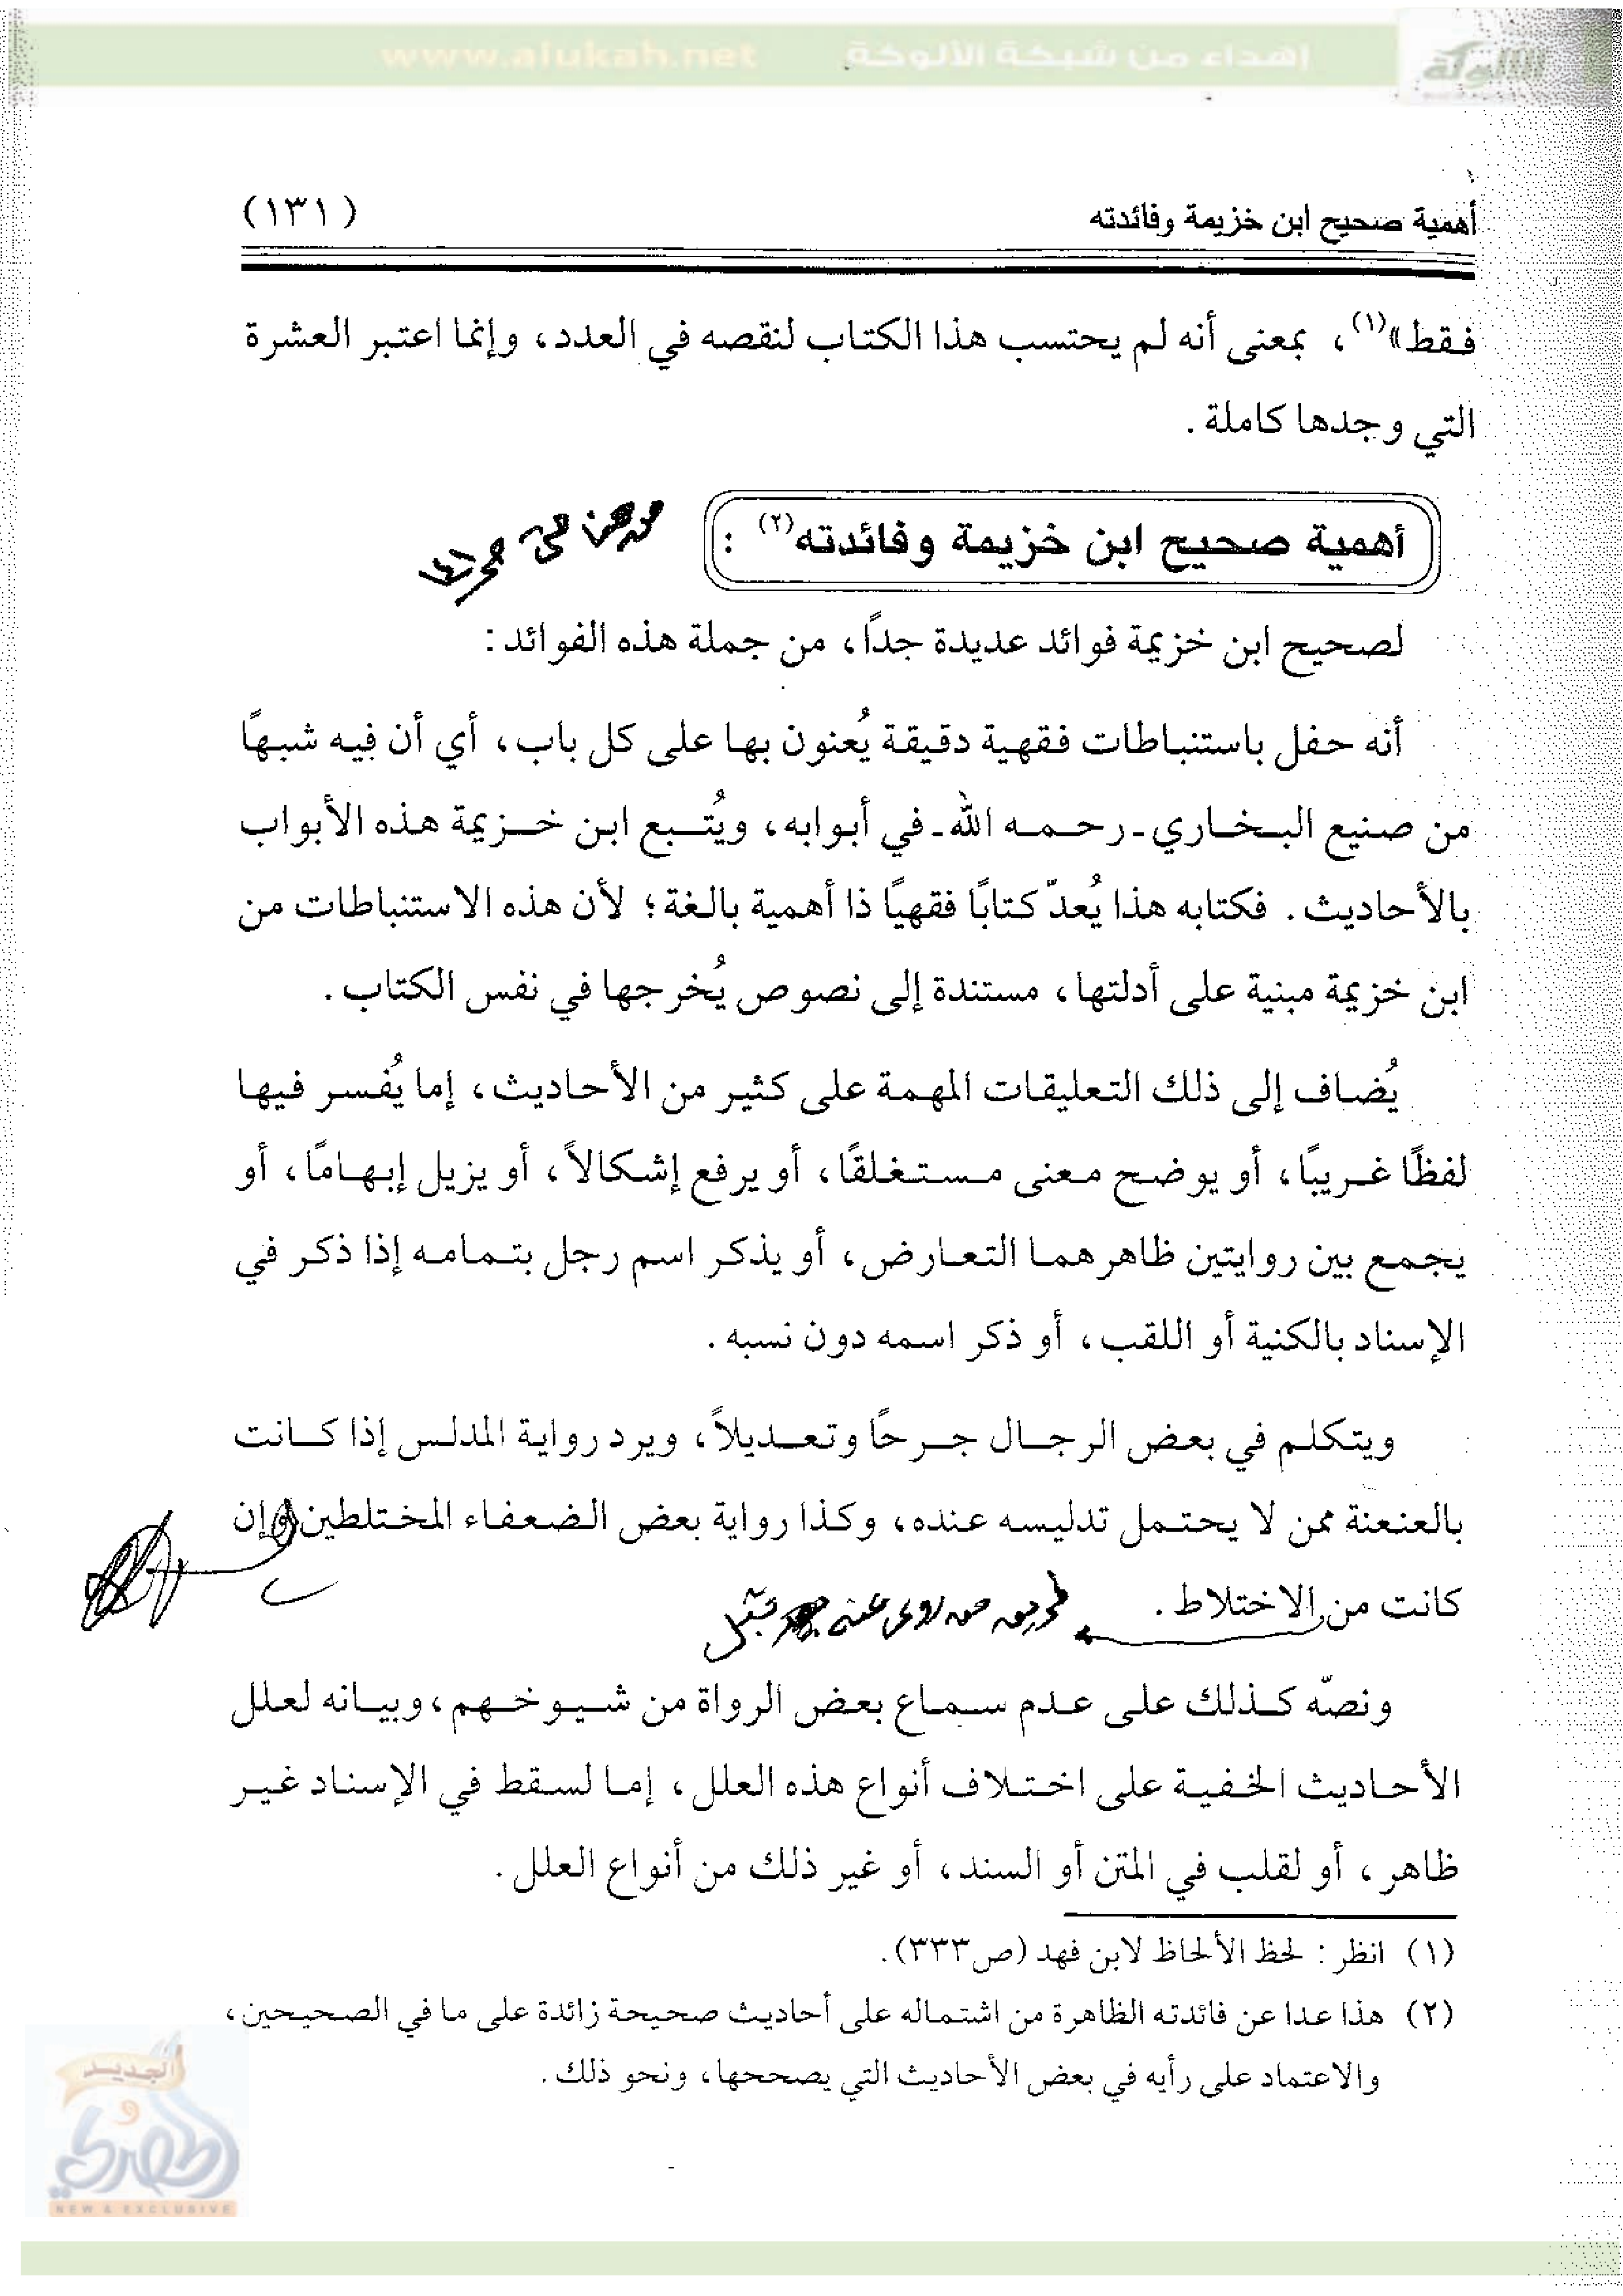 www.alukah.net إهداء من شبكة الألوكة
أهمية صحيح ابن خزيمة وفائدته (١٣١)
فقط»(١)، بمعنى أنه لم يحتسب هذا الكتاب لنقصه في العدد، وإنما اعتبر العشرة
التي وجدها كاملة .
أهمية صحيح ابن خزيمة وفائدته(٢) :
لصحيح ابن خزيمة فوائد عديدة جداً، من جملة هذه الفوائد :
أنه حفل باستنباطات فقهية دقيقة يُعنون بها على كل باب، أي أن فيه شبهًا
من صنيع البخاري ـ رحمه الله ـ في أبوابه، ويُتْبع ابن خزيمة هذه الأبواب
بالأحاديث . فكتابه هذا يُعدّ كتابًا فقهيًا ذا أهمية بالغة؛ لأن هذه الاستنباطات من
ابن خزيمة مبنية على أدلتها، مستندة إلى نصوص يُخرجها في نفس الكتاب .
يُضاف إلى ذلك التعليقات المهمة على كثير من الأحاديث، إما يُفسر فيها
لفظًا غريبًا، أو يوضح معنى مستغلقًا، أو يرفع إشكالاً، أو يزيل إبهامًا، أو
يجمع بين روايتين ظاهرهما التعارض، أو يذكر اسم رجل بتمامه إذا ذكر في
الإسناد بالكنية أو اللقب، أو ذكر اسمه دون نسبه .
ويتكلم في بعض الرجال جرحًا وتعديلاً، ويرد رواية المدلس إذا كانت
بالعنعنة ممن لا يحتمل تدليسه عنده، وكذا رواية بعض الضعفاء المختلطين وإن
كانت من الاختلاط .
طريق من روى عنه قبل
ونصّه كذلك على عدم سماع بعض الرواة من شيوخهم، وبيانه لعلل
الأحاديث الخفية على اختلاف أنواع هذه العلل، إما لسقط في الإسناد غير
ظاهر ، أو لقلب في المتن أو السند، أو غير ذلك من أنواع العلل .
(١) انظر : لحظ الألحاظ لابن فهد (ص٣٣٣).
(٢) هذا عدا عن فائدته الظاهرة من اشتماله على أحاديث صحيحة زائدة على ما في الصحيحين،
والاعتماد على رأيه في بعض الأحاديث التي يصححها، ونحو ذلك .
الجديد و
الحصري
NEW & EXCLUSIVE